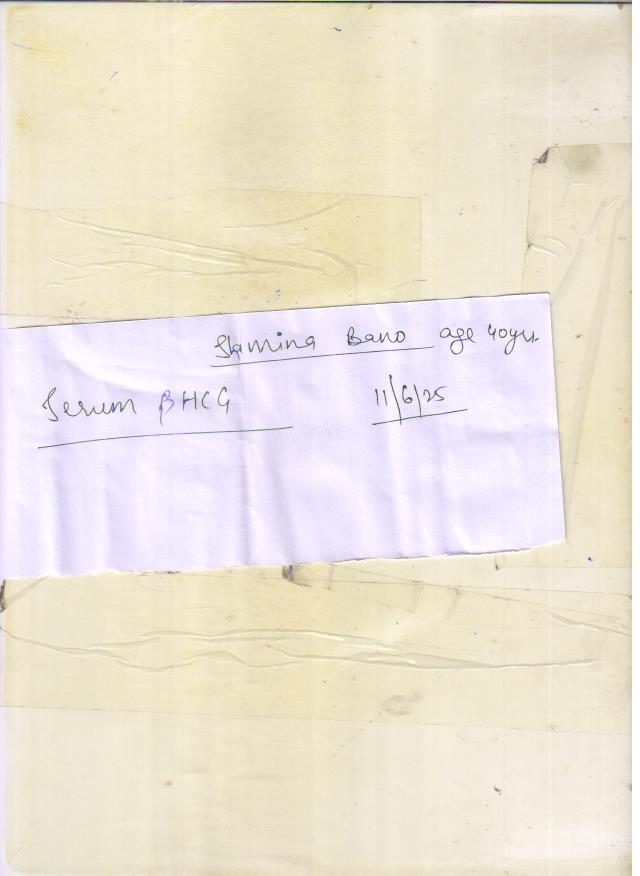 Shamina Bano age 40yrs.
Serum βHCG 11/6/25